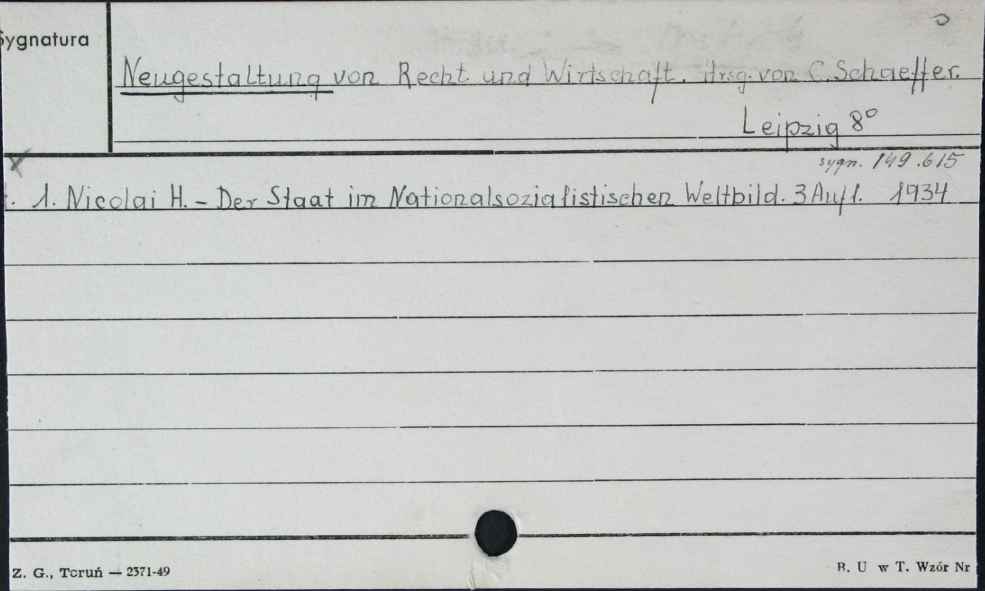 Sygnatura
Neugestaltung von Recht und Wirtschaft. Hrsg. von C. Schaeffer.
Leipzig 8°
sygn. 149.615
1. Nicolai H. - Der Staat im Nationalsozialistischen Weltbild. 3 Aufl. 1934
Z. G., Toruń — 2371-49
B. U w T. Wzór Nr